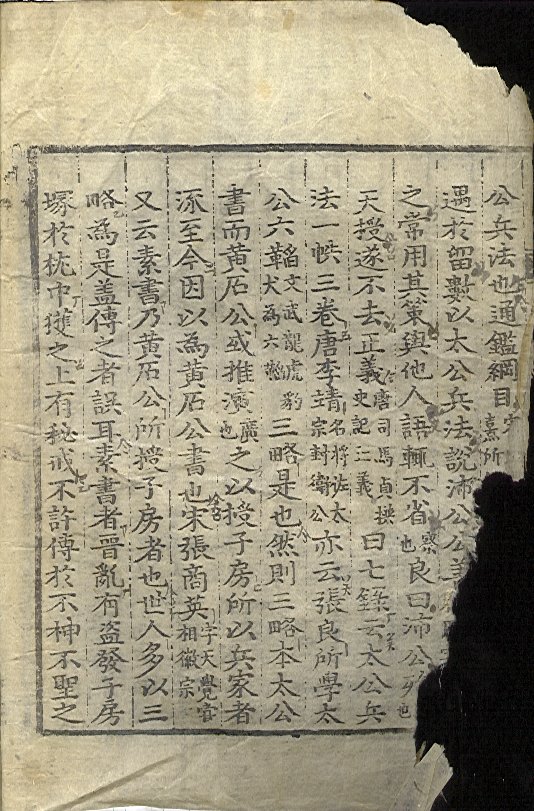 公兵法也通鑑綱目熹所
遇於留數以太公兵法說沛公公善
之常用其策與他人語輒不省察也良曰沛公
天授遂不去正義唐司馬貞撰史記正義曰七錄云太公兵
法一帙三卷唐李靖名將佐太宗封衛公亦云張良所學太
公六韜文武龍虎豹犬為六韜三略是也然則三略本太公
書而黃石公或推演廣也之以授子房所以兵家者
流至今因以為黃石公書也宋張商英字天覺官相徽宗
又云素書乃黃石公所授子房者也世人多以三
略為是盖傳之者誤耳素書者晋亂有盜發子房
塚於枕中獲之上有秘戒不許傳於不神不聖之